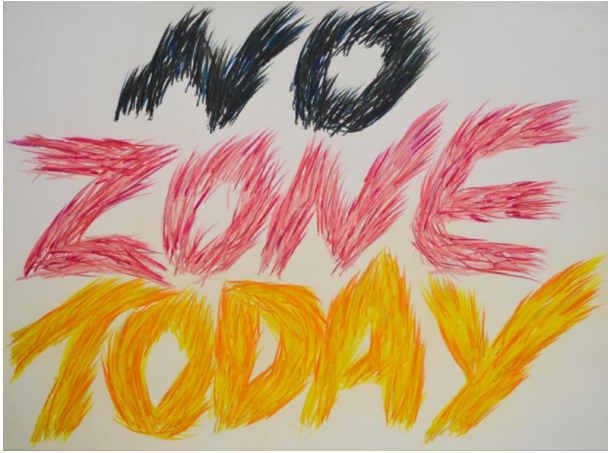 NO
ZONE
TODAY